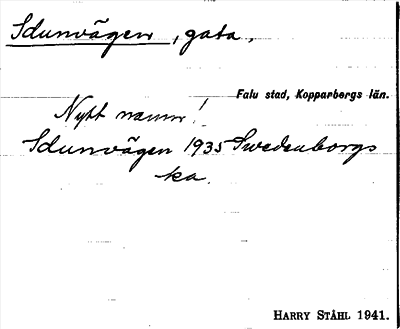 Idunvägen, gata,
Falu stad, Kopparbergs län.
Nytt namn!
Idunvägen 1935 Swedenborgs
ka.
HARRY STÅHL 1941.